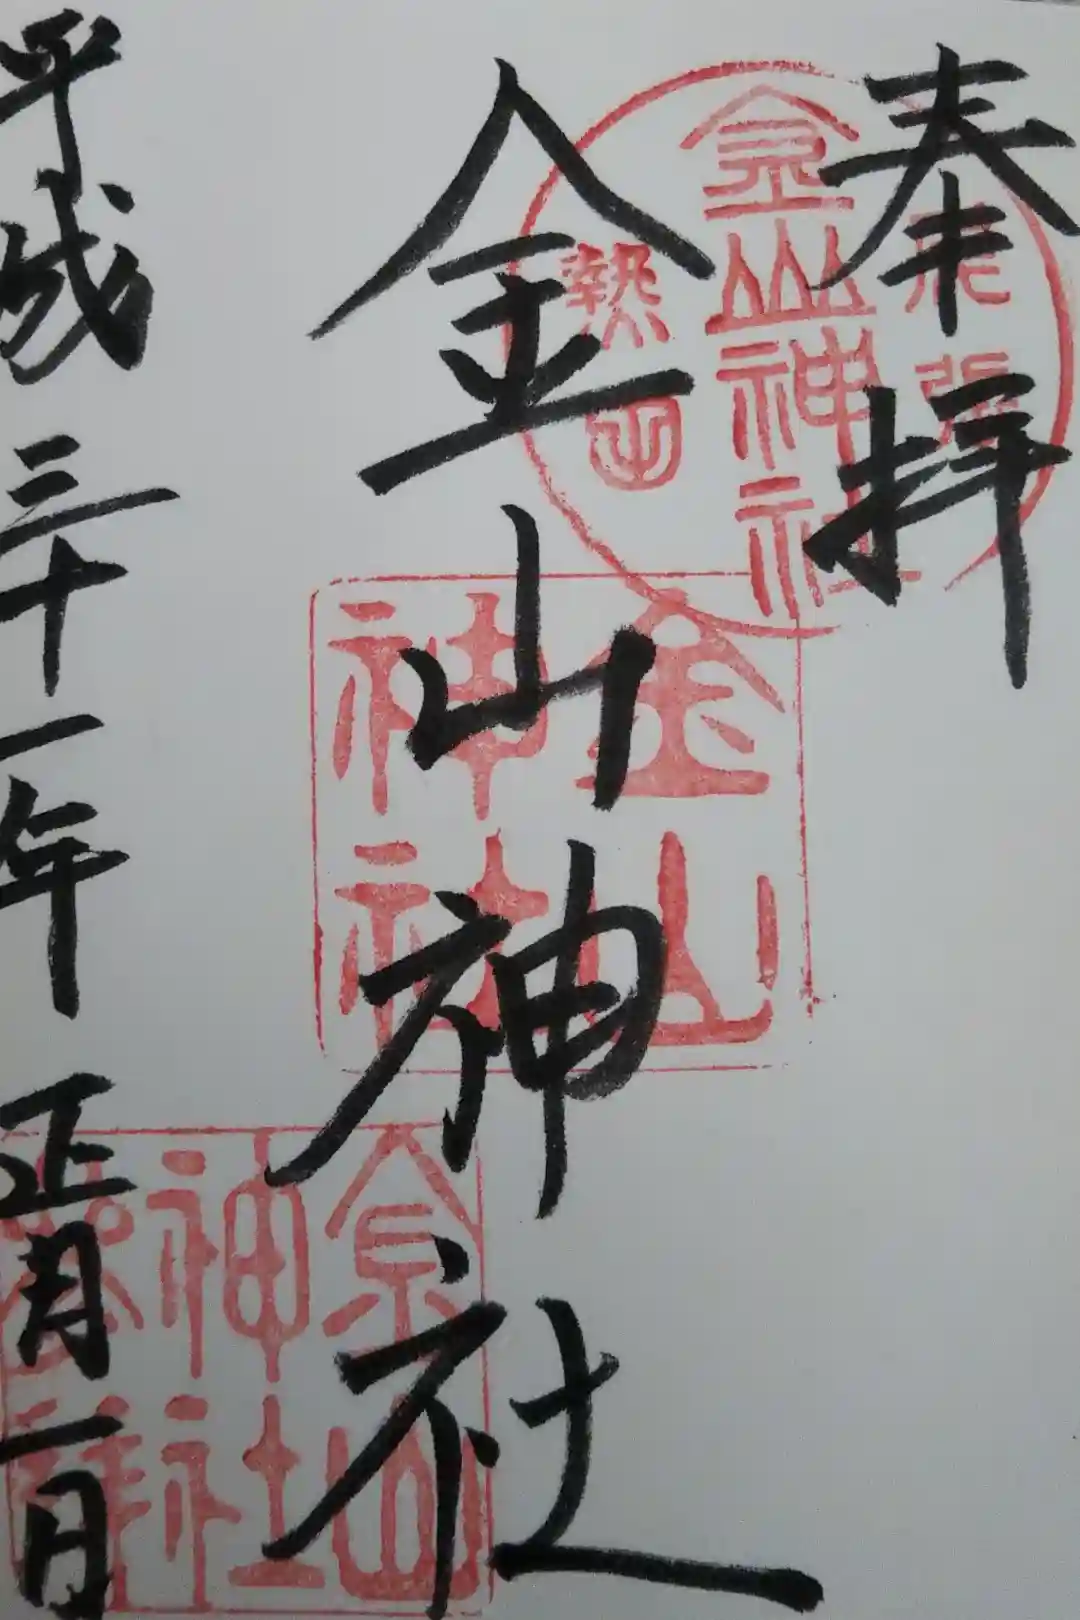 奉拝
金山神社
平成三十一年正月一日
尾張
金山神社
熱田
金山
神社
金山
神社